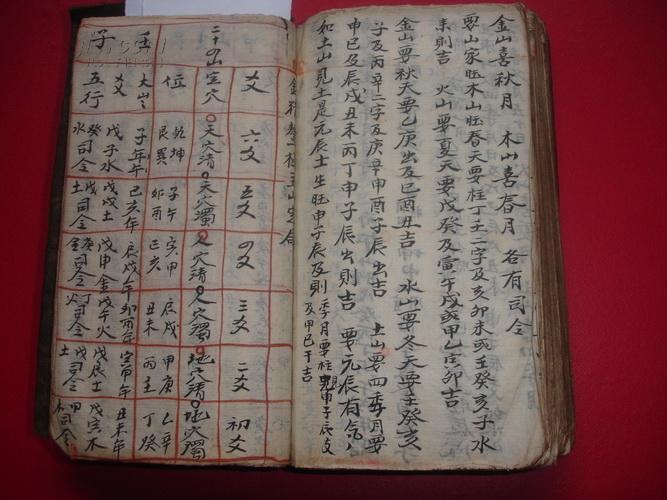 金山喜秋月 木山喜春月 各有司令
要山家旺木山旺春天要柱丁壬二字及亥卯未或壬癸亥子水
来則吉 火山要夏天要戊癸及寅午戌或甲乙寅卯吉
金山要秋天要乙庚出及巳酉丑吉 水山要冬天要壬癸亥
子及丙辛二字及庚辛申酉子辰出吉 土山要四季月要
甲巳及辰戌丑未丙丁申子辰出則吉 要元辰有氣
如土山見土是元辰土生旺申子辰及則
季月要柱申子辰支
及甲巳干吉
爻 六爻 五爻 四爻 三爻 二爻 初爻
二十四山定穴 天穴清 天穴濁 人穴清 人穴濁 地穴清 地穴濁
位 乾坤艮巽 子午卯酉 寅申巳亥 辰戌丑未 甲庚丙壬 乙辛丁癸
壬 爻 子年午 巳亥年 辰戌年 卯酉年 寅申年 丑未年
子 五行 戊子水 戊戌土 戊申金 戊午火 戊辰土 戊寅木
癸水司令 戊土司令 司令 丁火司令 戊土司令 甲木司令